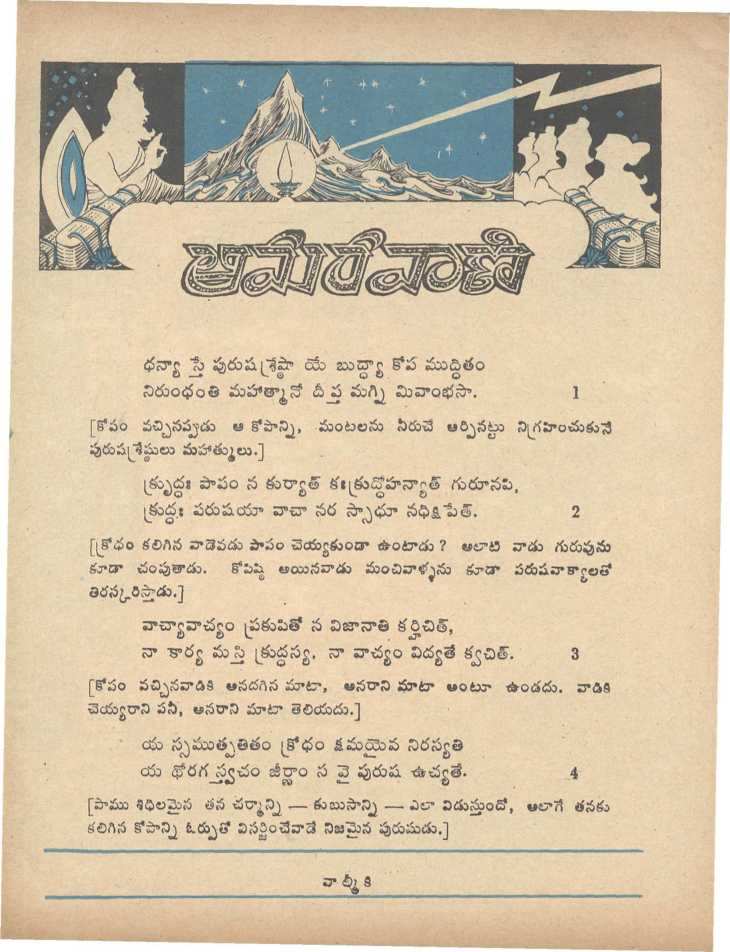 అమరవాణి
ధన్యా స్తే పురుషశ్రేష్ఠా యే బుద్ధ్యా కోప ముద్ధితం
నిరుంధంతి మహాత్మానో దీప్త మగ్ని మివాంభసా. 1
[కోపం వచ్చినప్పుడు ఆ కోపాన్ని, మంటలను నీరుచే ఆర్పినట్టు నిగ్రహించుకునే
పురుషశ్రేష్ఠులు మహాత్ములు.]
క్రుద్ధః పాపం న కుర్యాత్ కః క్రుద్ధోహన్యాత్ గురూనపి,
క్రుద్ధః పరుషయా వాచా నర స్సాధూ నధిక్షిపేత్. 2
[క్రోధం కలిగిన వాడెవడు పాపం చెయ్యకుండా ఉంటాడు? అలాటి వాడు గురువును
కూడా చంపుతాడు. కోపిష్ఠి అయినవాడు మంచివాళ్ళను కూడా పరుషవాక్యాలతో
తిరస్కరిస్తాడు.]
వాచ్యావాచ్యం ప్రకుపితో న విజానాతి కర్హిచిత్,
నా కార్య మస్తి క్రుద్ధస్య, నా వాచ్యం విద్యతే క్వచిత్. 3
[కోపం వచ్చినవాడికి అనదగిన మాటా, అనరాని మాటా అంటూ ఉండదు. వాడికి
చెయ్యరాని పనీ, అనరాని మాటా తెలియదు.]
య స్సముత్పతితం క్రోధం క్షమయైవ నిరస్యతి
య థోరగ స్త్వచం జీర్ణాం స వై పురుష ఉచ్యతే. 4
[పాము శిథిలమైన తన చర్మాన్ని — కుబుసాన్ని — ఎలా విడుస్తుందో, అలాగే తనకు
కలిగిన కోపాన్ని ఓర్పుతో విసర్జించేవాడే నిజమైన పురుషుడు.]
వాల్మీకి